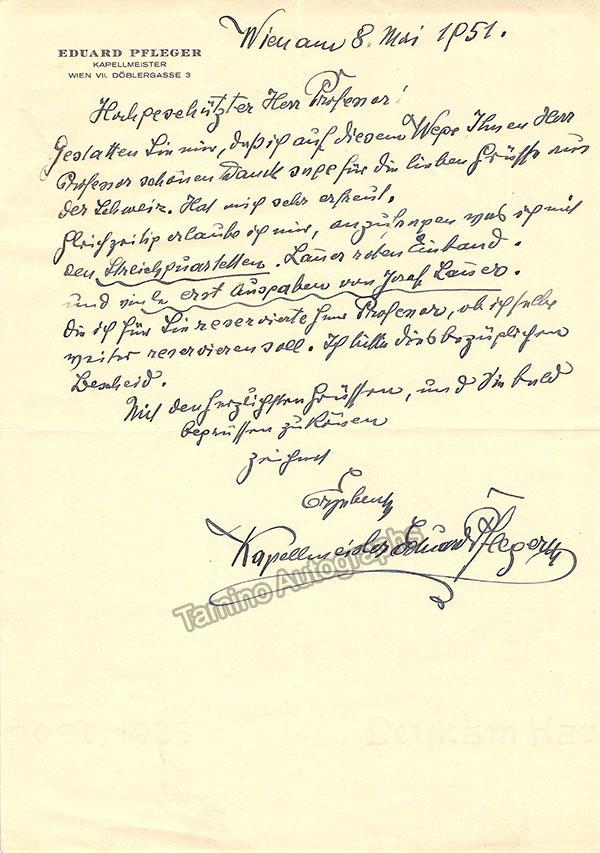 EDUARD PFLEGER
KAPELLMEISTER
WIEN VII. DÖBLERGASSE 3
Wien am 8. Mai 1951.
Hochgeschätzter Herr Professor!
Gestatten Sie mir, daß ich auf diesem Wege Ihnen Herr
Professor schönen Dank sage für die lieben Grüsse aus
der Schweiz. Hat mich sehr erfreut.
Gleichzeitig erlaube ich mir, anzufragen was ich mit
den Streichquartetten. Lauer roten Einband.
und viele erst Ausgaben von Josef Lauer.
die ich für Sie reservierte Herr Professor, ob ich selbe
weiter reservieren soll. Ich bitte diesbezüglichen
Bescheid.
Mit den herzlichsten Grüssen, und Sie bald
begrüssen zu können
zeichnet
Ergebenst
Kapellmeister Eduard Pfleger
Tamino Autographs
post 1935
Leykam Har